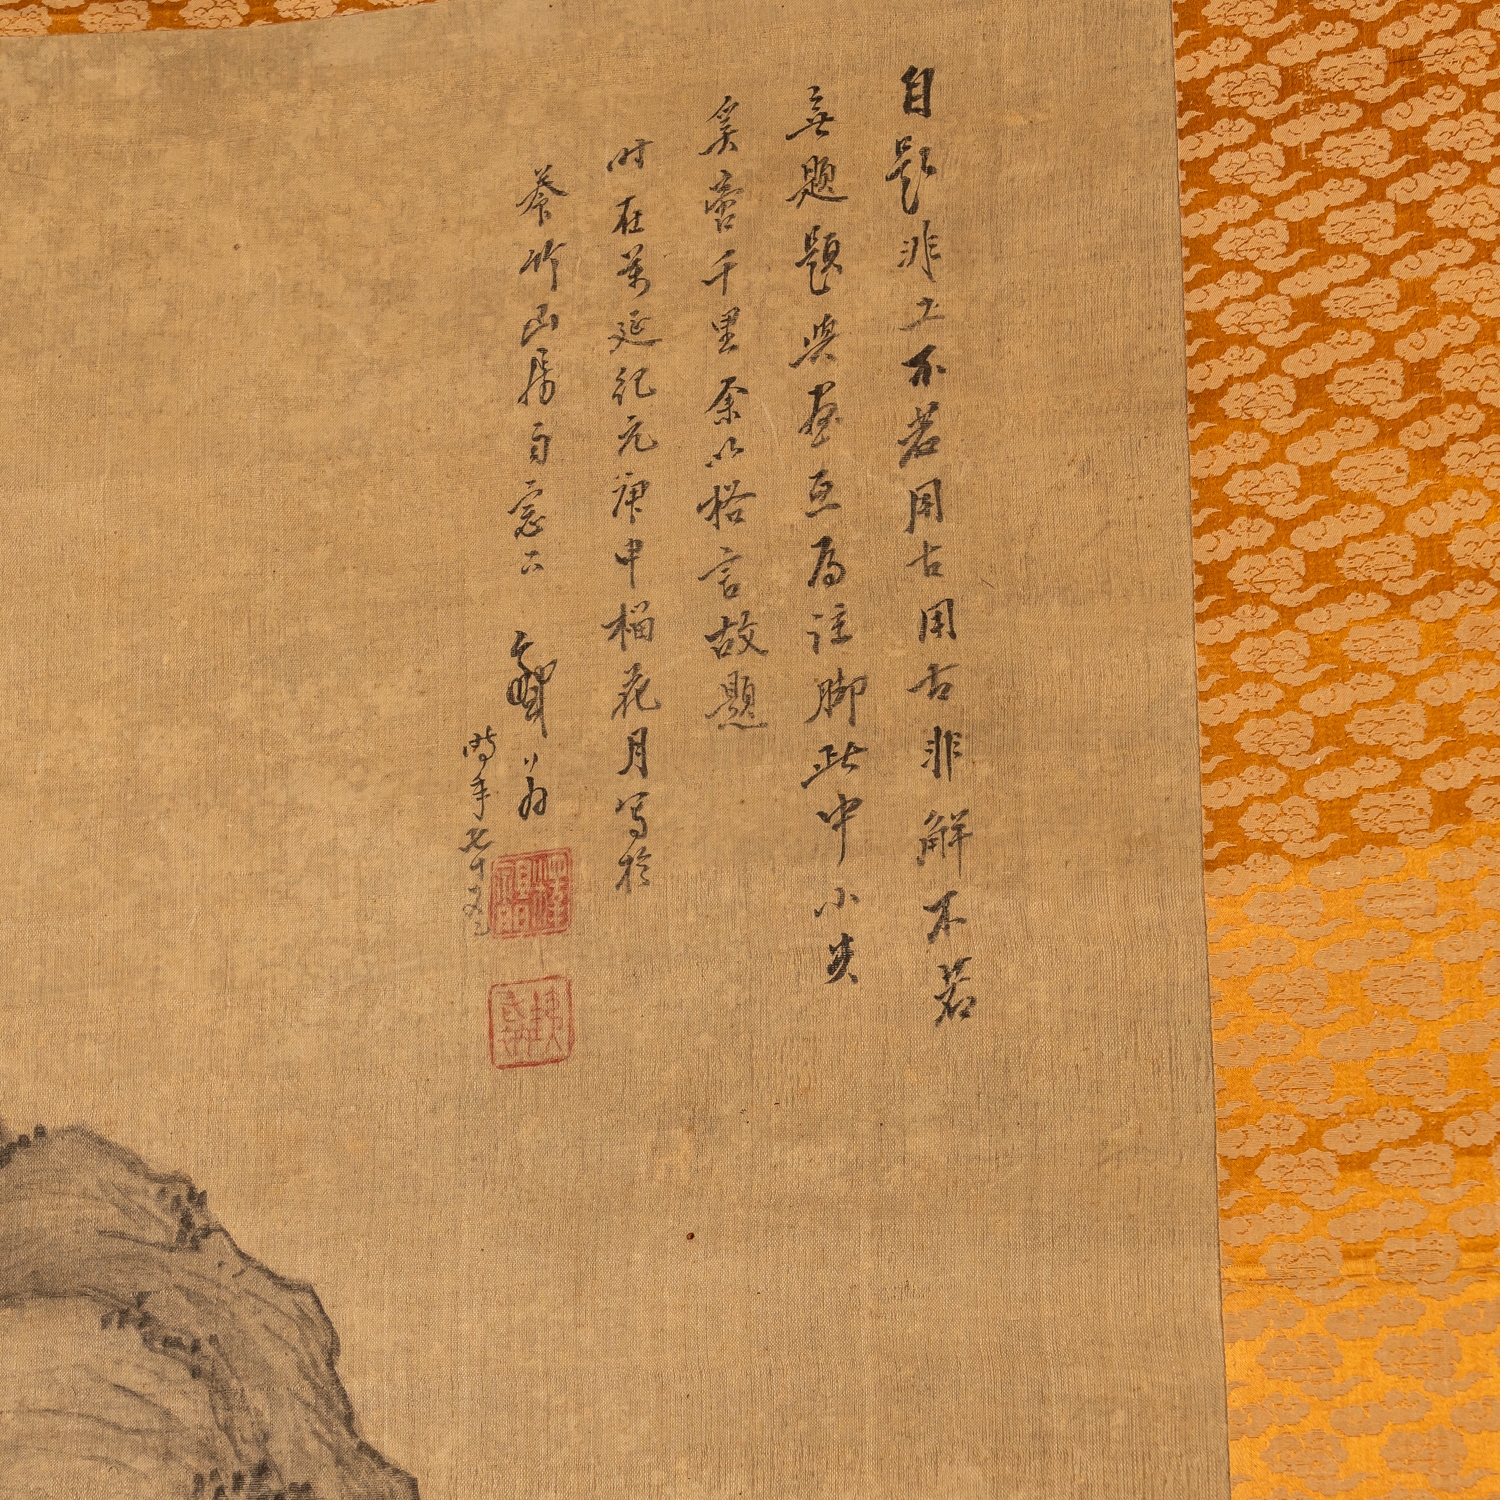 自題非工不若用古用古非解不若
無題題與畫互為注脚此中小失
奚啻千里余以格言故題
时在萬延紀元庚申榴花月写於
竹山房南窓下 翁
時年七十五